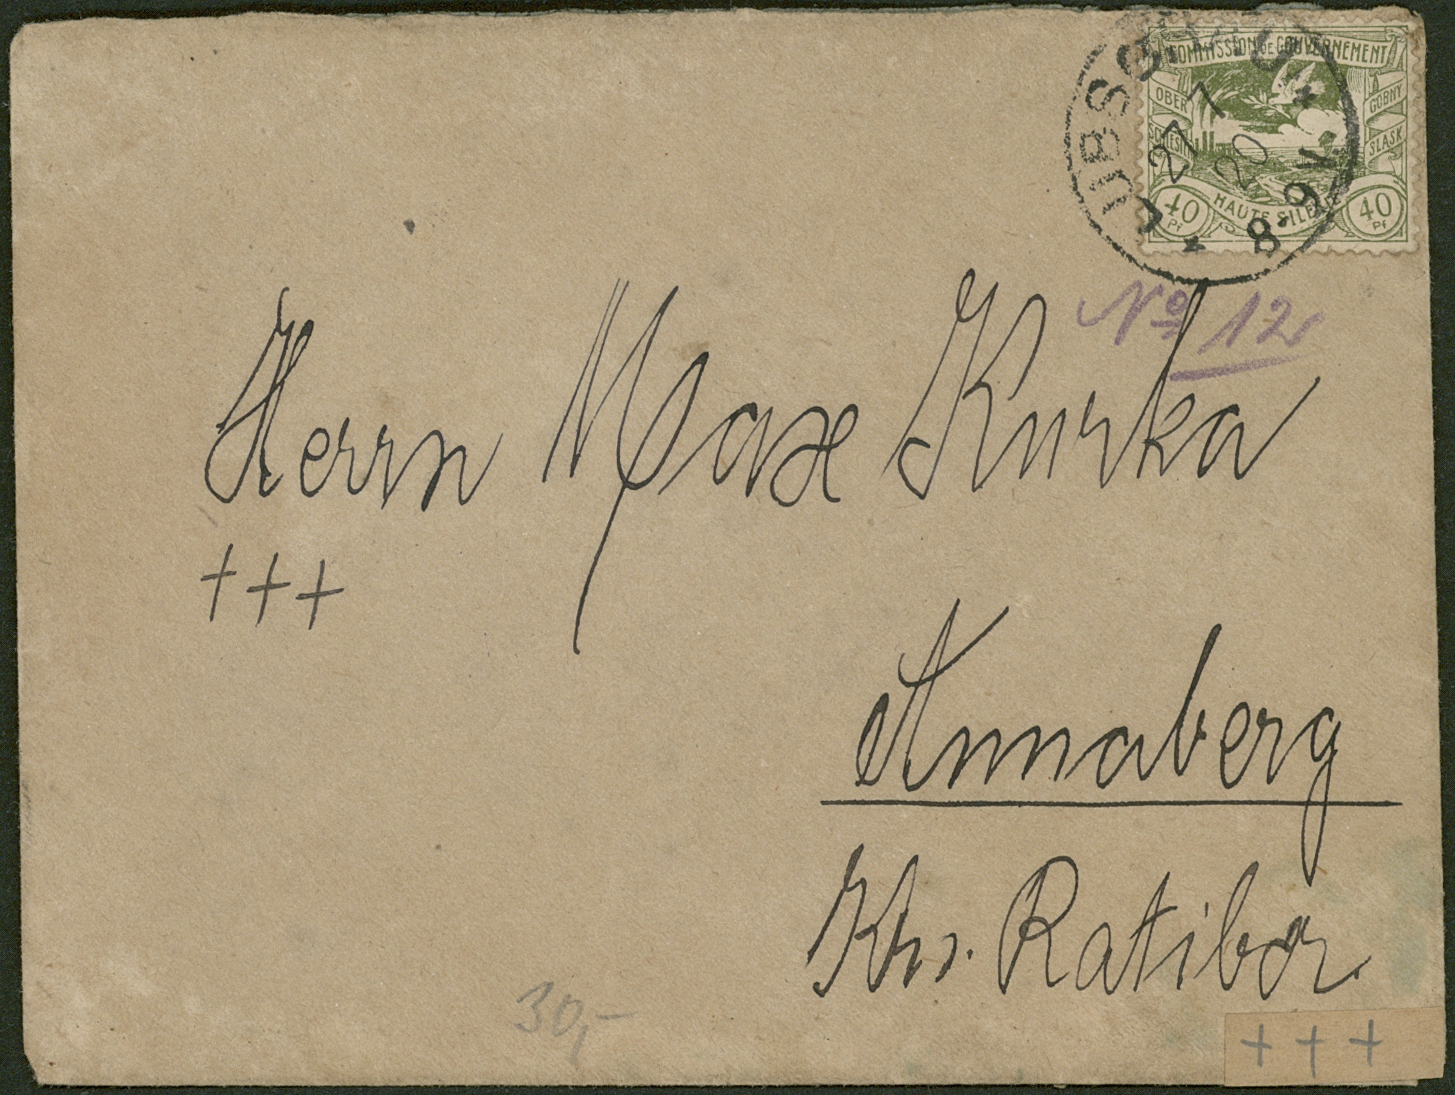 COMMISSION DE GOUVERNEMENT
OBER
GORNY
SCHLESIEN
SLASK
HAUTE SILE
40 Pf
40 Pf
27 7 20
8-9V
No 12
Herrn Max Kurka
+++
Annaberg
Krs. Ratibor
30,-
+++